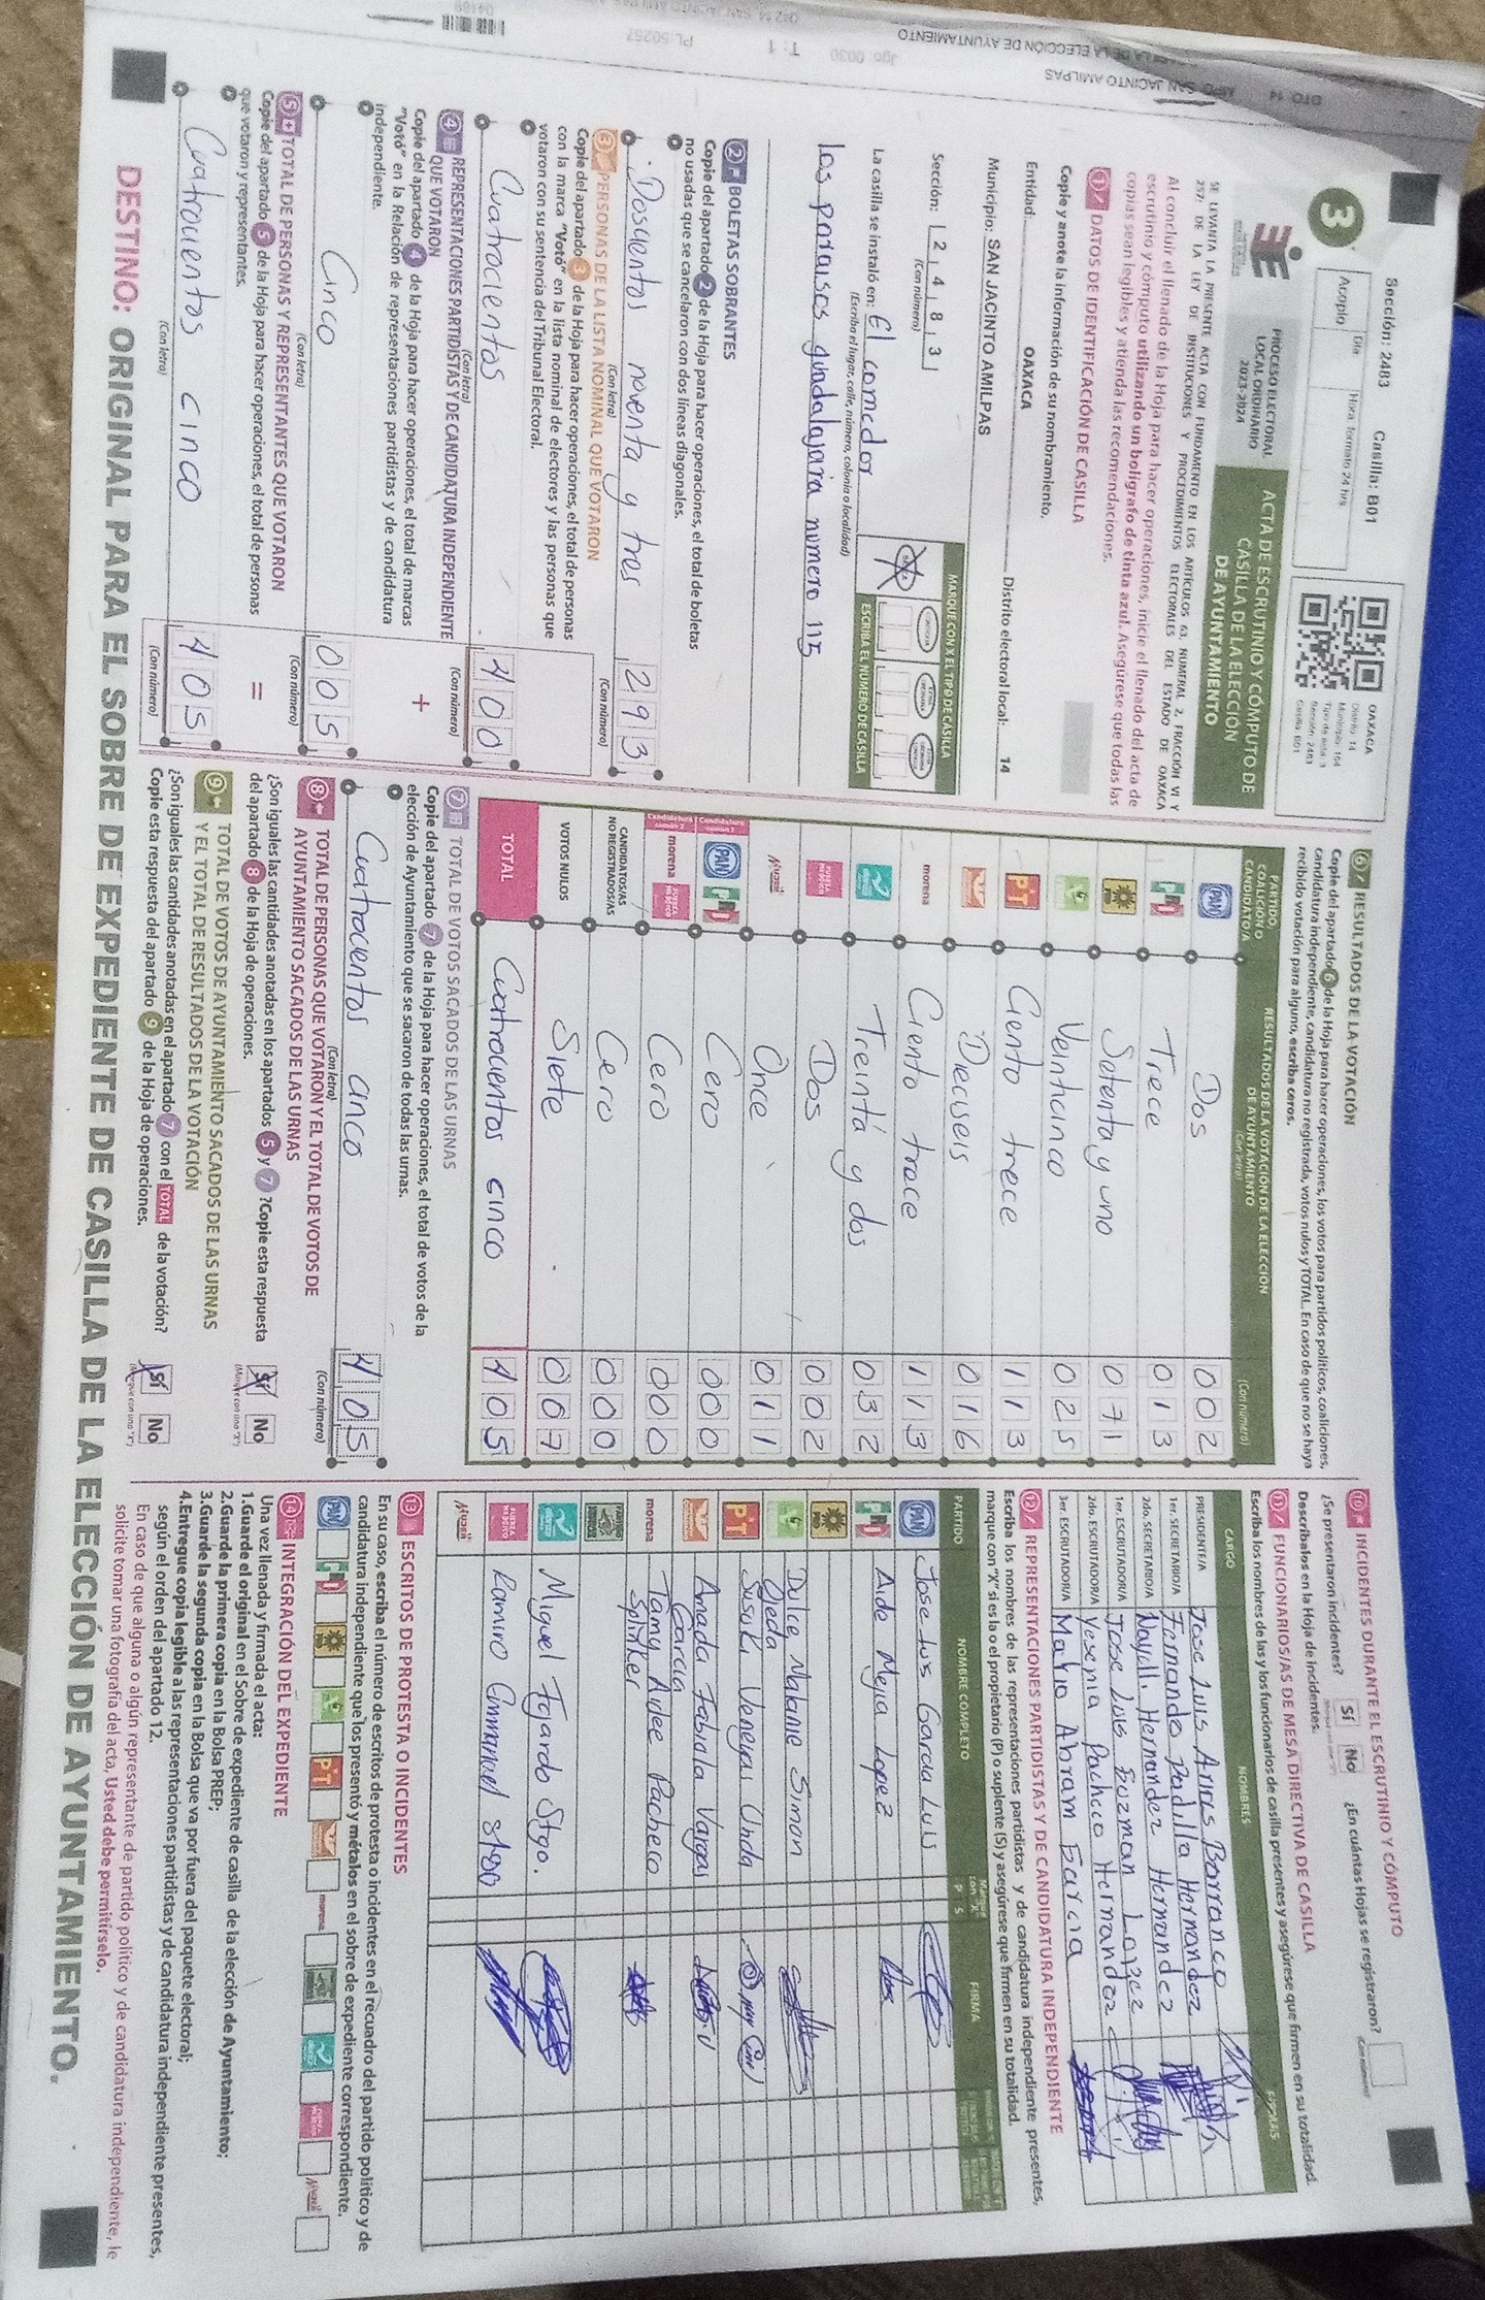 Sección: 2483 Casilla: B01
OAXACA
Distrito: 14
Municipio: 164
Sección: 2483
Casilla: B01
Día
Hora: formato 24 hrs
Acopio
3
PROCESO ELECTORAL
LOCAL ORDINARIO
2023-2024
ACTA DE ESCRUTINIO Y CÓMPUTO DE
CASILLA DE LA ELECCIÓN
DE AYUNTAMIENTO
SE LEVANTA LA PRESENTE ACTA CON FUNDAMENTO EN LOS ARTÍCULOS 63, NUMERAL 2, FRACCIÓN VI Y
257; DE LA LEY DE INSTITUCIONES Y PROCEDIMIENTOS ELECTORALES DEL ESTADO DE OAXACA
Al concluir el llenado de la Hoja para hacer operaciones, inicie el llenado del acta de
escrutinio y cómputo utilizando un bolígrafo de tinta azul. Asegúrese que todas las
copias sean legibles y atienda las recomendaciones.
1 DATOS DE IDENTIFICACIÓN DE CASILLA
Copie y anote la información de su nombramiento.
Entidad: OAXACA Distrito electoral local: 14
Municipio: SAN JACINTO AMILPAS
Sección: 2 4 8 3
(Con número)
MARQUE CON X EL TIPO DE CASILLA
ESCRIBA EL NÚMERO DE CASILLA
La casilla se instaló en: El comedor
(Escriba el lugar, calle, número, colonia o localidad)
los paraisos guadalajara numero 115
2 BOLETAS SOBRANTES
Copie del apartado 2 de la Hoja para hacer operaciones, el total de boletas
no usadas que se cancelaron con dos líneas diagonales.
Doscientos noventa y tres 293
(Con letra) (Con número)
3 PERSONAS DE LA LISTA NOMINAL QUE VOTARON
Copie del apartado 3 de la Hoja para hacer operaciones, el total de personas
con la marca "Votó" en la lista nominal de electores y las personas que
votaron con su sentencia del Tribunal Electoral.
Cuatrocientos 400
(Con letra) (Con número)
4 REPRESENTACIONES PARTIDISTAS Y DE CANDIDATURA INDEPENDIENTE
QUE VOTARON
Copie del apartado 4 de la Hoja para hacer operaciones, el total de marcas
"Votó" en la Relación de representaciones partidistas y de candidatura
independiente.
+
Cinco 005
(Con letra) (Con número)
5 TOTAL DE PERSONAS Y REPRESENTANTES QUE VOTARON
Copie del apartado 5 de la Hoja para hacer operaciones, el total de personas
que votaron y representantes.
=
Cuatrocientos cinco 405
(Con letra) (Con número)
6 RESULTADOS DE LA VOTACIÓN
Copie del apartado 6 de la Hoja para hacer operaciones, los votos para partidos políticos, coaliciones,
candidatura independiente, candidatura no registrada, votos nulos y TOTAL. En caso de que no se haya
recibido votación para alguno, escriba ceros.
PARTIDO, COALICIÓN O CANDIDATO/A
RESULTADOS DE LA VOTACIÓN DE LA ELECCIÓN DE AYUNTAMIENTO
(Con letra) (Con número)
PAN Dos 002
PRI Trece 013
PRD Setenta y uno 071
Veinticinco 025
PT Ciento trece 113
Dieciseis 016
morena Ciento trece 113
Treinta y dos 032
FUERZA MÉXICO Dos 002
Once 011
PAN PRI Cero 000
morena FUERZA MÉXICO Cero 000
CANDIDATOS/AS NO REGISTRADOS/AS Cero 000
VOTOS NULOS Siete 007
TOTAL Cuatrocientos cinco 405
7 TOTAL DE VOTOS SACADOS DE LAS URNAS
Copie del apartado 7 de la Hoja para hacer operaciones, el total de votos de la
elección de Ayuntamiento que se sacaron de todas las urnas.
Cuatrocientos cinco 405
(Con letra) (Con número)
8 TOTAL DE PERSONAS QUE VOTARON Y EL TOTAL DE VOTOS DE
AYUNTAMIENTO SACADOS DE LAS URNAS
¿Son iguales las cantidades anotadas en los apartados 5 y 7 ? Copie esta respuesta
del apartado 8 de la Hoja de operaciones.
Sí No
9 TOTAL DE VOTOS DE AYUNTAMIENTO SACADOS DE LAS URNAS
Y EL TOTAL DE RESULTADOS DE LA VOTACIÓN
¿Son iguales las cantidades anotadas en el apartado 7 con el TOTAL de la votación?
Copie esta respuesta del apartado 9 de la Hoja de operaciones.
Sí No
10 INCIDENTES DURANTE EL ESCRUTINIO Y CÓMPUTO
¿Se presentaron incidentes? Sí No ¿En cuántas Hojas se registraron?
Descríbalos en la Hoja de incidentes.
11 FUNCIONARIOS/AS DE MESA DIRECTIVA DE CASILLA
Escriba los nombres de las y los funcionarios de casilla presentes y asegúrese que firmen en su totalidad.
CARGO NOMBRES FIRMAS
PRESIDENTE/A Jose Luis Arias Barranco
1er. SECRETARIO/A Fernando Padilla Hernandez
2do. SECRETARIO/A Nayeli Hernandez Hernandez
1er. ESCRUTADOR/A Jose Luis Guzman Lopez
2do. ESCRUTADOR/A Yesenia Pacheco Hernandez
3er. ESCRUTADOR/A Mario Abram Garcia
12 REPRESENTACIONES PARTIDISTAS Y DE CANDIDATURA INDEPENDIENTE
Escriba los nombres de las representaciones partidistas y de candidatura independiente presentes,
marque con "X" si es la o el propietario (P) o suplente (S) y asegúrese que firmen en su totalidad.
PARTIDO NOMBRE COMPLETO P S FIRMA
PAN Jose Luis Garcia Luis
PRI Aide Mejia Lopez
PRD
Dulce Malanie Simon Ojeda
PT Susuki Venegas Unda
Anada Fabiala Vargas Garcia
morena Tamy Aidee Pacheco Splinker
Miguel Fajardo Stgo.
FUERZA MÉXICO Ramiro Emmanuel
13 ESCRITOS DE PROTESTA O INCIDENTES
En su caso, escriba el número de escritos de protesta o incidentes en el recuadro del partido político y de
candidatura independiente que los presentó y métalos en el sobre de expediente correspondiente.
PAN PRI PRD PT morena
14 INTEGRACIÓN DEL EXPEDIENTE
Una vez llenada y firmada el acta:
1.Guarde el original en el Sobre de expediente de casilla de la elección de Ayuntamiento;
2.Guarde la primera copia en la Bolsa PREP;
3.Guarde la segunda copia en la Bolsa que va por fuera del paquete electoral;
4.Entregue copia legible a las representaciones partidistas y de candidatura independiente presentes,
según el orden del apartado 12.
En caso de que alguna o algún representante de partido político y de candidatura independiente, le
solicite tomar una fotografía del acta, Usted debe permitírselo.
DESTINO: ORIGINAL PARA EL SOBRE DE EXPEDIENTE DE CASILLA DE LA ELECCIÓN DE AYUNTAMIENTO.